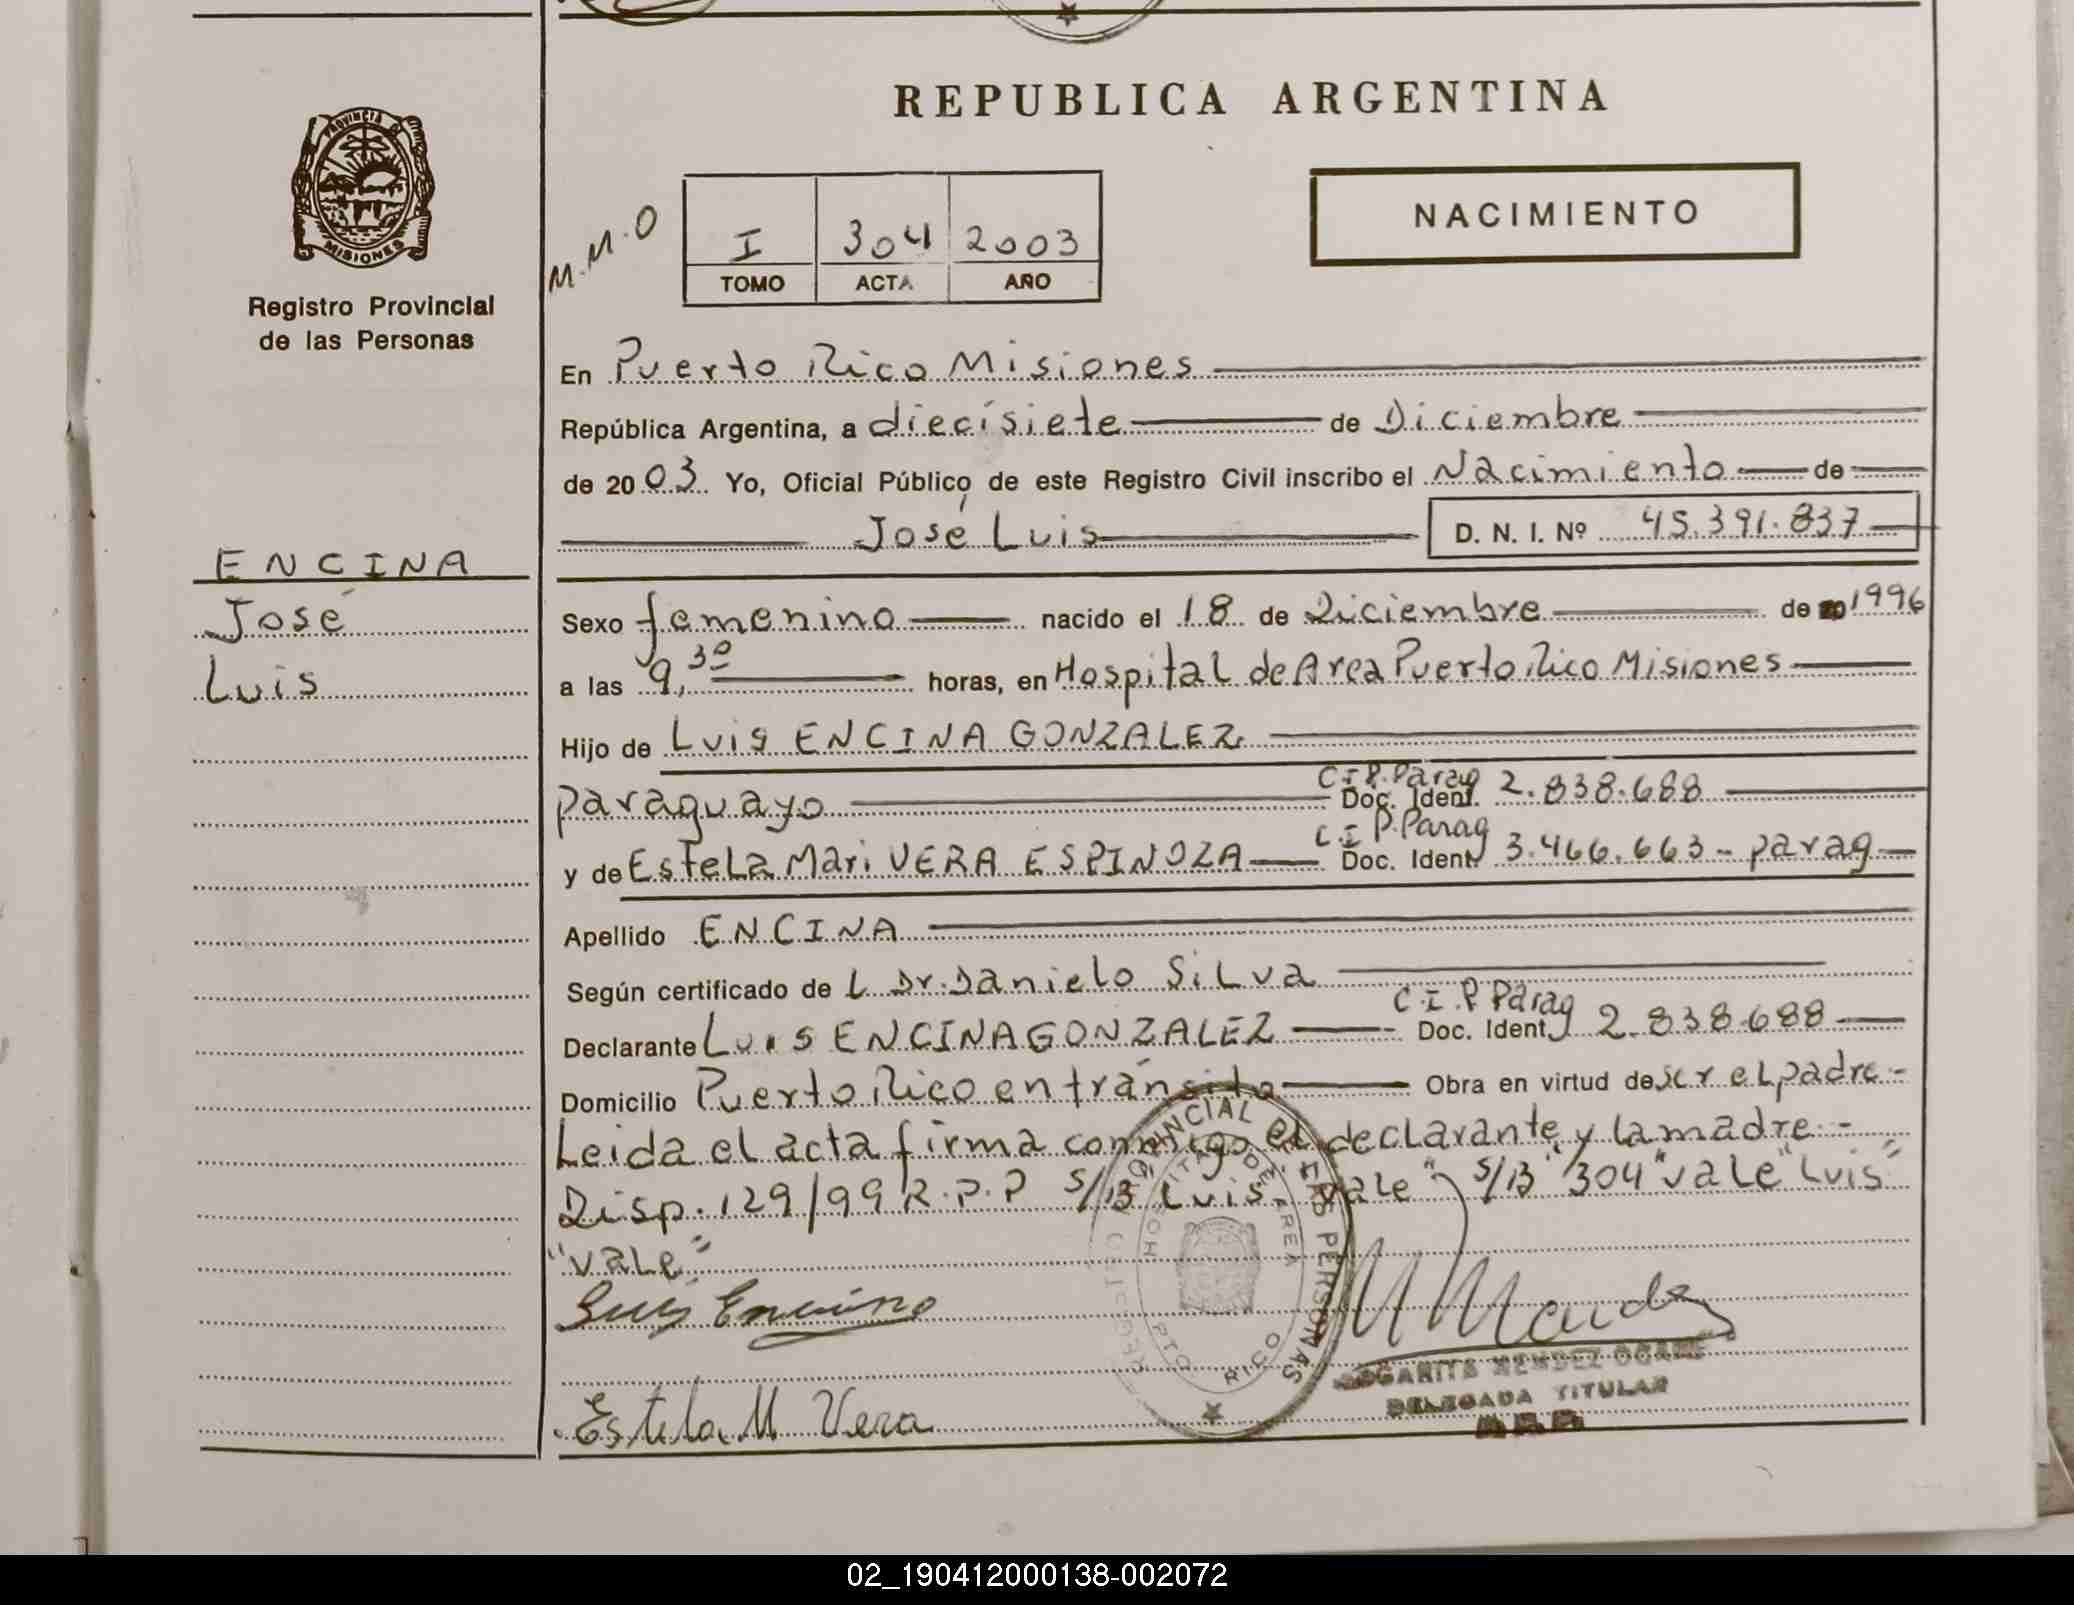 REPUBLICA ARGENTINA
PROVINCIA DE
MISIONES
Registro Provincial
de las Personas
M.M.O
I 304 2003
TOMO ACTA AÑO
NACIMIENTO
En Puerto Rico Misiones
República Argentina, a diecisiete de Diciembre
de 20 03. Yo, Oficial Público de este Registro Civil inscribo el Nacimiento de
José Luis D. N. I. Nº 45.391.837
ENCINA
José
Luis
Sexo femenino nacido el 18 de Diciembre de 1996
a las 9,30 horas, en Hospital de Area Puerto Rico Misiones
Hijo de Luis ENCINA GONZALEZ
paraguayo C.I.P. Parag Doc. Ident. 2.838.688
y de Estela Mari VERA ESPINOZA C.I.P. Parag Doc. Ident. 3.466.663 - parag
Apellido ENCINA
Según certificado de L Dr. Danielo Silva
Declarante Luis ENCINA GONZALEZ C.I.P. Parag Doc. Ident. 2.838.688
Domicilio Puerto Rico en tránsito Obra en virtud de ser el padre -
Leida el acta firma conmigo el declarante y la madre. -
Disp. 129/99 R.P.P s/B "Luis" "vale" s/B "304" "vale" "Luis"
"vale"
Luis Encina
Estela M Vera
PROVINCIAL DE LAS PERSONAS
HOSPITAL DE AREA
PTO RICO
MENDEZ
DELEGADA TITULAR
02_190412000138-002072